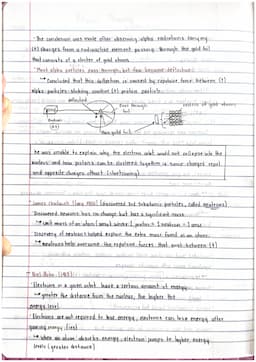 The conclusion was made after observing alpha radiations carrying
(+) charges from a radioactive element passing through the gold foil
that consists of a cluster of gold atoms.
Most alpha particles pass through, but few became deflected.
Concluded that this deflection is caused by repulsive force between (+)
alpha particles striking another (+) protein particle.
deflected
pass through
foil
nucleus of gold atoms
thin gold foil
He was unable to explain why the electrons orbit would not collapse into the
nucleus and how protons can be clustered together as same charges repel
and opposite charges attract.
James Chadwick (1932) discovered 3rd subatomic particles, called neutrons
Discovered neutrons has no charge but has a significant mass.
Discovery of neutrons helped explain the extra mass found in an atom.
neutrons help overcome the repulsive forces that exist between (+)
Niels Bohr (1913):
Electrons in a given orbit have a certain amount of energy
greater the distance from the nucleus, the higher the
energy level.
Electrons are not required to lose energy, electrons can lose energy after
gaining energy first
when an atom absorbs energy, electrons jumps to higher energy
levels (greater distance)